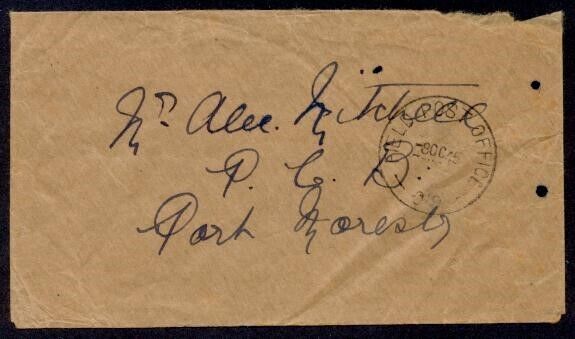 Mr Alec. Mitchell
P. C. B
Port Moresby
POST OFFICE
-8 OC 45